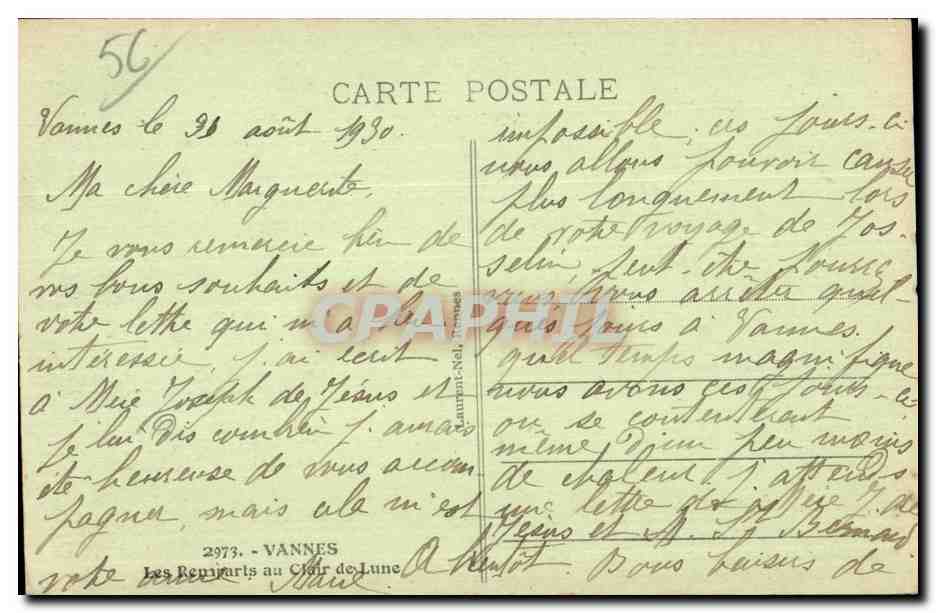 56
CARTE POSTALE
Vannes le 31 août 1930.
Ma chère Marguerite,
Je vous remercie bien de
vos bons souhaits et de
votre lettre qui m'a bien
intéressée, j'ai écrit
à Mère Joseph de Jésus et
je lui dis combien j'aurais
été heureuse de vous accom-
pagner, mais cela m'est
impossible, ces jours-ci
nous allons pouvoir causer
plus longuement lors
de votre voyage de Jos-
selin, peut-être pourrez
vous vous arrêter quel-
ques jours à Vannes.
quel temps magnifique
nous avons ces jours-ci
on se contenterait
même d'un peu moins
de chaleur. J'attends
une lettre de Mère J. de
Jésus et M. St Bernard
A bientôt. Bons baisers de
votre amie Marie.
2973. - VANNES
Les Remparts au Clair de Lune
Laurent-Nel, Rennes
CPAPHIL